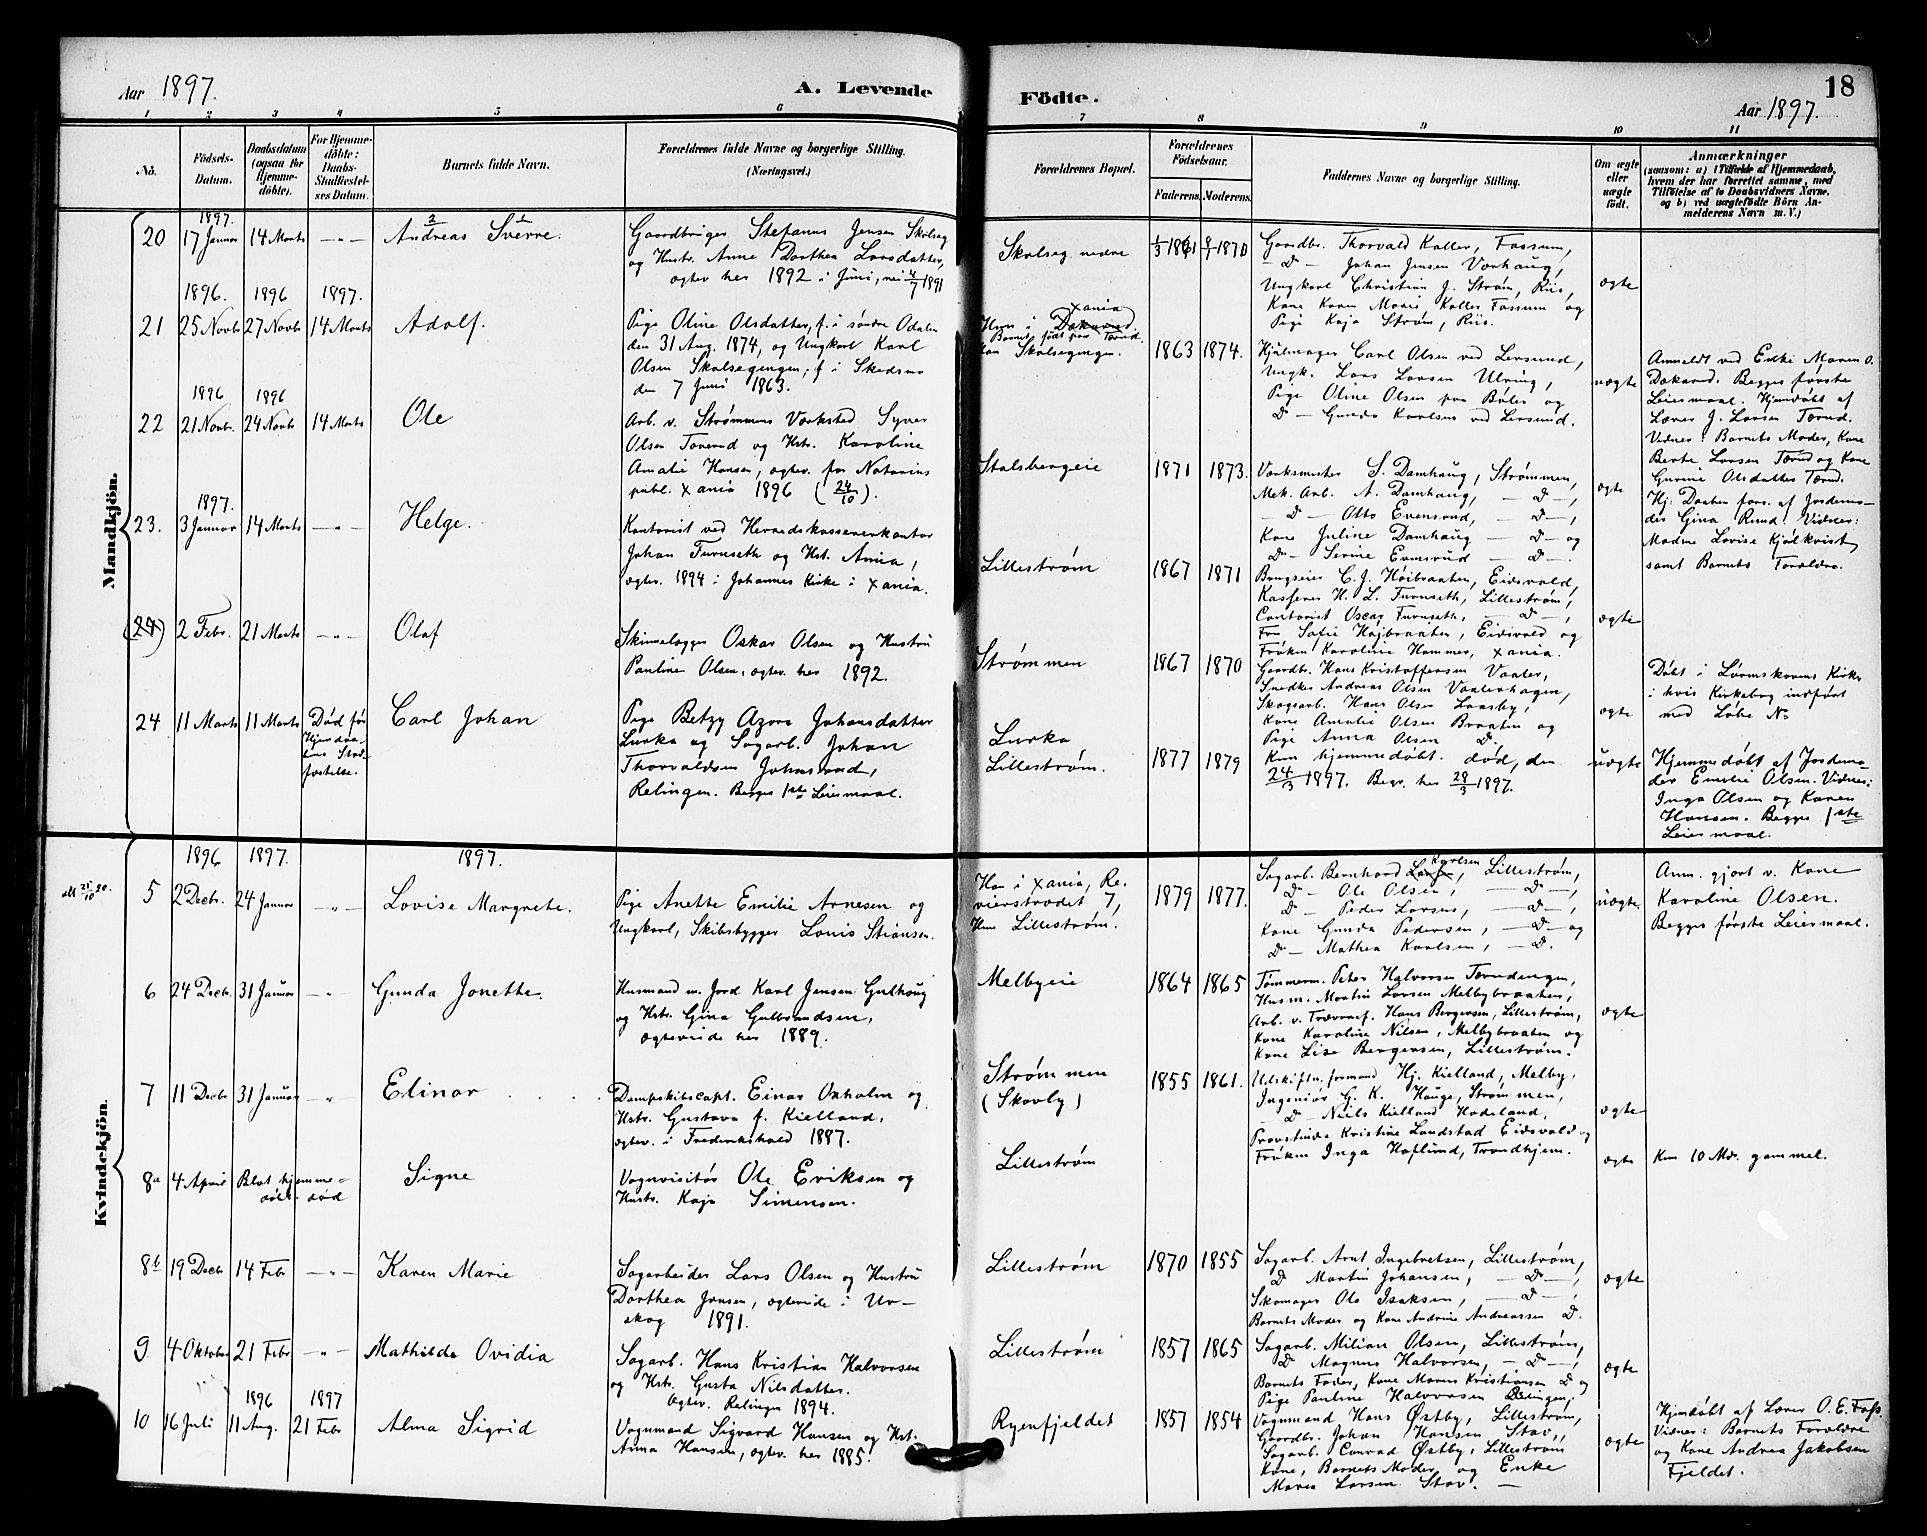 Aar 1897.
A. Levende
Födte.
18
Aar 1897.
1 2 3 4 5 6 7 8 9 10 11
No.
Födsels-Datum.
Daabsdatum (ogsaa for Hjemme-döbte).
For Hjemme-döbte: Daabs-Stadfæstelses Datum.
Barnets fulde Navn.
Forældrenes fulde Navne og borgerlige Stilling.
(Næringsvei.)
Forældrenes Bopæl.
Forældrenes Födselsaar.
Faderens. Moderens.
Faddernes Navne og borgerlige Stilling.
Om ægte eller uægte födt.
Anmærkninger
(saasom: a) i Tilfælde af Hjemmedaab, hvem der har forrettet samme, med Tilföielse af to Daabsvidners Navne, og b) ved uægtefödte Börn Anmelderens Navn m. V.)
Mandkjön.
1897.
20 17 Januar 14 Marts —"— Andreas Sverre.
Gaardbruger Stefanus Jensen Skolseg
og Hustr. Anne Dorthea Larsdatter,
ægtev. her 1892 i Juni,
Skolseg nedre
1870
Gaardbr. Thorvald Kaller, Fossum,
— D — Johan Jensen Vorhaug,
Ungkarl Christian J. Strøm, Riis,
Kone Karen Marie Kaller Fossum og
Pige Kaja Strøm, Riis.
ægte
1896. 1896 1897.
21 25 Novbr 27 Novbr 14 Marts Adolf.
Pige Oline Olsdatter, f. i søndre Odalen
den 31 Aug. 1874, og Ungkarl Karl
Olsen Skolsegengen, f. i Skedsmo
den 7 Juni 1863.
Hun i Xania
Barnet født paa Tærud.
Han Skolsegengen.
1863 1874.
Hjulmager Carl Olsen ved Lersund,
Ungk. Lars Larsen Ulving,
Pige Oline Olsen paa Bøler og
D — Gunda Karlsen ved Lersund.
uægte
Anmeldt ved Enke Maren O.
Dakarud. Begges første
Leiermaal. Hjemdøbt af
Lærer J. Larsen Tærud.
Vidner: Barnets Moder, Kone
Berte Larsen Tærud og Kone
Gurine Olsdatter Tærud.
1896 1896
22 21 Novbr. 24 Novbr 14 Marts Ole
Arb. v. Strømmens Værksted Syver
Olsen Toverud og Hstr. Karoline
Amalie Hansen, ægtev. for Notarius
publ. Xania 1896 (24/10).
Stalsbergeie
1871 1873.
Værksmester S. Damhaug, Strømmen,
Mek. Arb. A. Damhaug, — D —,
— D — Otto Evensrud, — D —,
Kone Juline Damhaug — D — og
D — Serine Evensrud — D —.
ægte
Hj. Daaben fors. af Jordemo-
der Gina Ruud. Vidner:
Madme Lovise Kjølkvist
samt Barnets Forældre.
1897.
23. 3 Januar 14 Marts —"— Helge.
Kontorist ved Herredskassererkontor
Johan Furuseth og Hst. Anna,
ægtev. 1894 i Johannes Kirke i Xania.
Lillestrøm
1867 1871
Brugseier C. J. Høibraaten, Eidsvold,
Kasserer H. L. Furuseth, Lillestrøm,
Contorist Oscar Furuseth, — D —,
Fru Sofie Højbraaten, Eidsvold og
Frøken Karoline Hammer, Xania.
ægte
(24) 2 Febr. 21 Marts —"— Olaf
Skinnelægger Oskar Olsen og Hustru
Pauline Olsen, ægtev. her 1892.
Strømmen
1867 1870
Gaardbr. Hans Kristoffersen Vaaler,
Snedker Andreas Olsen Vaalerhagen,
Skogsarb. Hans Olsen Losby,
Kone Amalie Olsen Braaten og
Pige Anna Olsen D.
ægte
Døbt i Lørnskovens Kirke
i hvis Kirkebog indført
med Løbe No
24 11 Marts 11 Marts Død før Hjemdaabens Stadfæstelse. Carl Johan
Pige Betzy Azora Johansdatter
Lurka og Sagarb. Johan
Thorvaldsen Johnsrud,
Relingen. Begges 1ste Leiermaal.
Lurka
Lillestrøm.
1877 1879
Kun hjemmedøbt. død, den
24/3 1897. Begr. her 28/3 1897.
uægte
Hjemmedøbt af Jordemo-
der Emilie Olsen. Vidner:
Inga Olsen og Karen
Hansen. Begges 1ste
Leiermaal.
Kvindekjön.
1896 1897. 1897.
5 2 Decbr. 24 Januar —"— Lovise Margrete.
Pige Anette Emilie Arnesen og
Ungkarl, Skibsbygger Louis Stiansen.
Han i Xania, Re-
vierstrædet 7,
Hun Lillestrøm.
1879 1877.
Sagarb. Bernhard Karlsen, Lillestrøm,
D — Ole Olsen, — D —,
D — Peder Larsen, — D —,
Kone Gunda Pedersen, — D — og
D — Mathea Karlsen, — D.
uægte
Anm. gjort v. Kone
Karoline Olsen.
Begges første Leiermaal.
6 24 Decbr. 31 Januar —"— Gunda Jonette.
Husmand m. Jord Karl Jensen Gulhaug
og Hstr. Gina Gulbrandsen,
ægteviede her 1889.
Melbyeie
1864 1865
Tømmerm. Peter Halvorsen Tærudengen,
Husm. Martin Larsen Melbybraaten,
Arb. v. Trævaref. Hans Bergersen, Lillestrøm,
Kone Karoline Nilsen, Melbybraaten og
Kone Lise Bergersen, Lillestrøm.
ægte
7 11 Decbr 31 Januar —"— Elinor
Dampskibscapt. Einar Oxholm og
Hstr. Gustava f. Kielland,
ægtev. i Frederikshald 1887.
Strømmen
(Skovly)
1855 1861.
Udskiftn. formand Hj. Kielland, Melby,
Ingeniør G. K. Hauge, Strømmen,
— D — Niels Kielland Hadeland,
Provstinde Kristine Landstad Eidsvold og
Frøken Inga Høflund, Trondhjem.
ægte
8a 4 April Blot hjemmedøbt. død Signe
Vognvisitør Ole Eriksen og
Hustr. Kaja Simensen.
Lillestrøm
ægte
Kun 10 Mdr. gammel.
8b 19 Decbr 14 Febr —"— Karen Marie
Sagarbeider Lars Olsen og Hustru
Dorthea Jensen, ægteviede i Ur-
skog 1891.
Lillestrøm
1870 1855
Sagarb. Arnt Ingebretsen, Lillestrøm,
D Martin Johansen, — D —,
Skomager Ole Isaksen, — D —,
Barnets Moder og Kone Andrine Andreassen D.
ægte
9 4 Oktober 21 Febr —"— Mathilde Ovidia
Sagarb. Hans Kristian Halvorsen
og Hstr. Gusta Nilsdatter.
Ægtev. Relingen 1894.
Lillestrøm
1857 1865
Sagarb. Milian Olsen, Lillestrøm,
D Magnus Halvorsen, — D —,
Barnets Fader, Kone Maren Kristiansen D og
Pige Pauline Halvorsen Relingen.
ægte
1896 1897
10 16 Juli 11 Aug. 21 Febr Alma Sigrid
Vognmand Sigvard Hansen og Hst.
Anna Hansen, ægtev. her 1885.
Ryenfjeldet
1857 1854
Vognmand Hans Østby, Lillestrøm,
Gaardbr. Johan Hansen Stav,
Sagarb. Conrad Østby, Lillestrøm
Kone, Barnets Moder og Enke
Maren Larsen Stav. —
ægte
Hjemdøbt af Lærer O. E. Foss.
Vidner: Barnets Forældre
og Kone Andrea Jakobsen
Fjeldet.